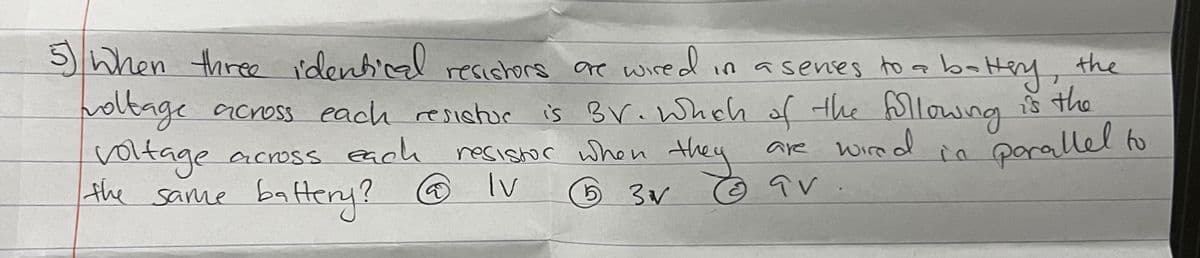 5) When three identical resistors are wired in a series to a battery, the
voltage across each resistor is 3V. Which of the following is the
voltage across each resistor when they are wired in parallel to
the same battery? ⓐ 1V ⓑ 3V ⓒ 9V.